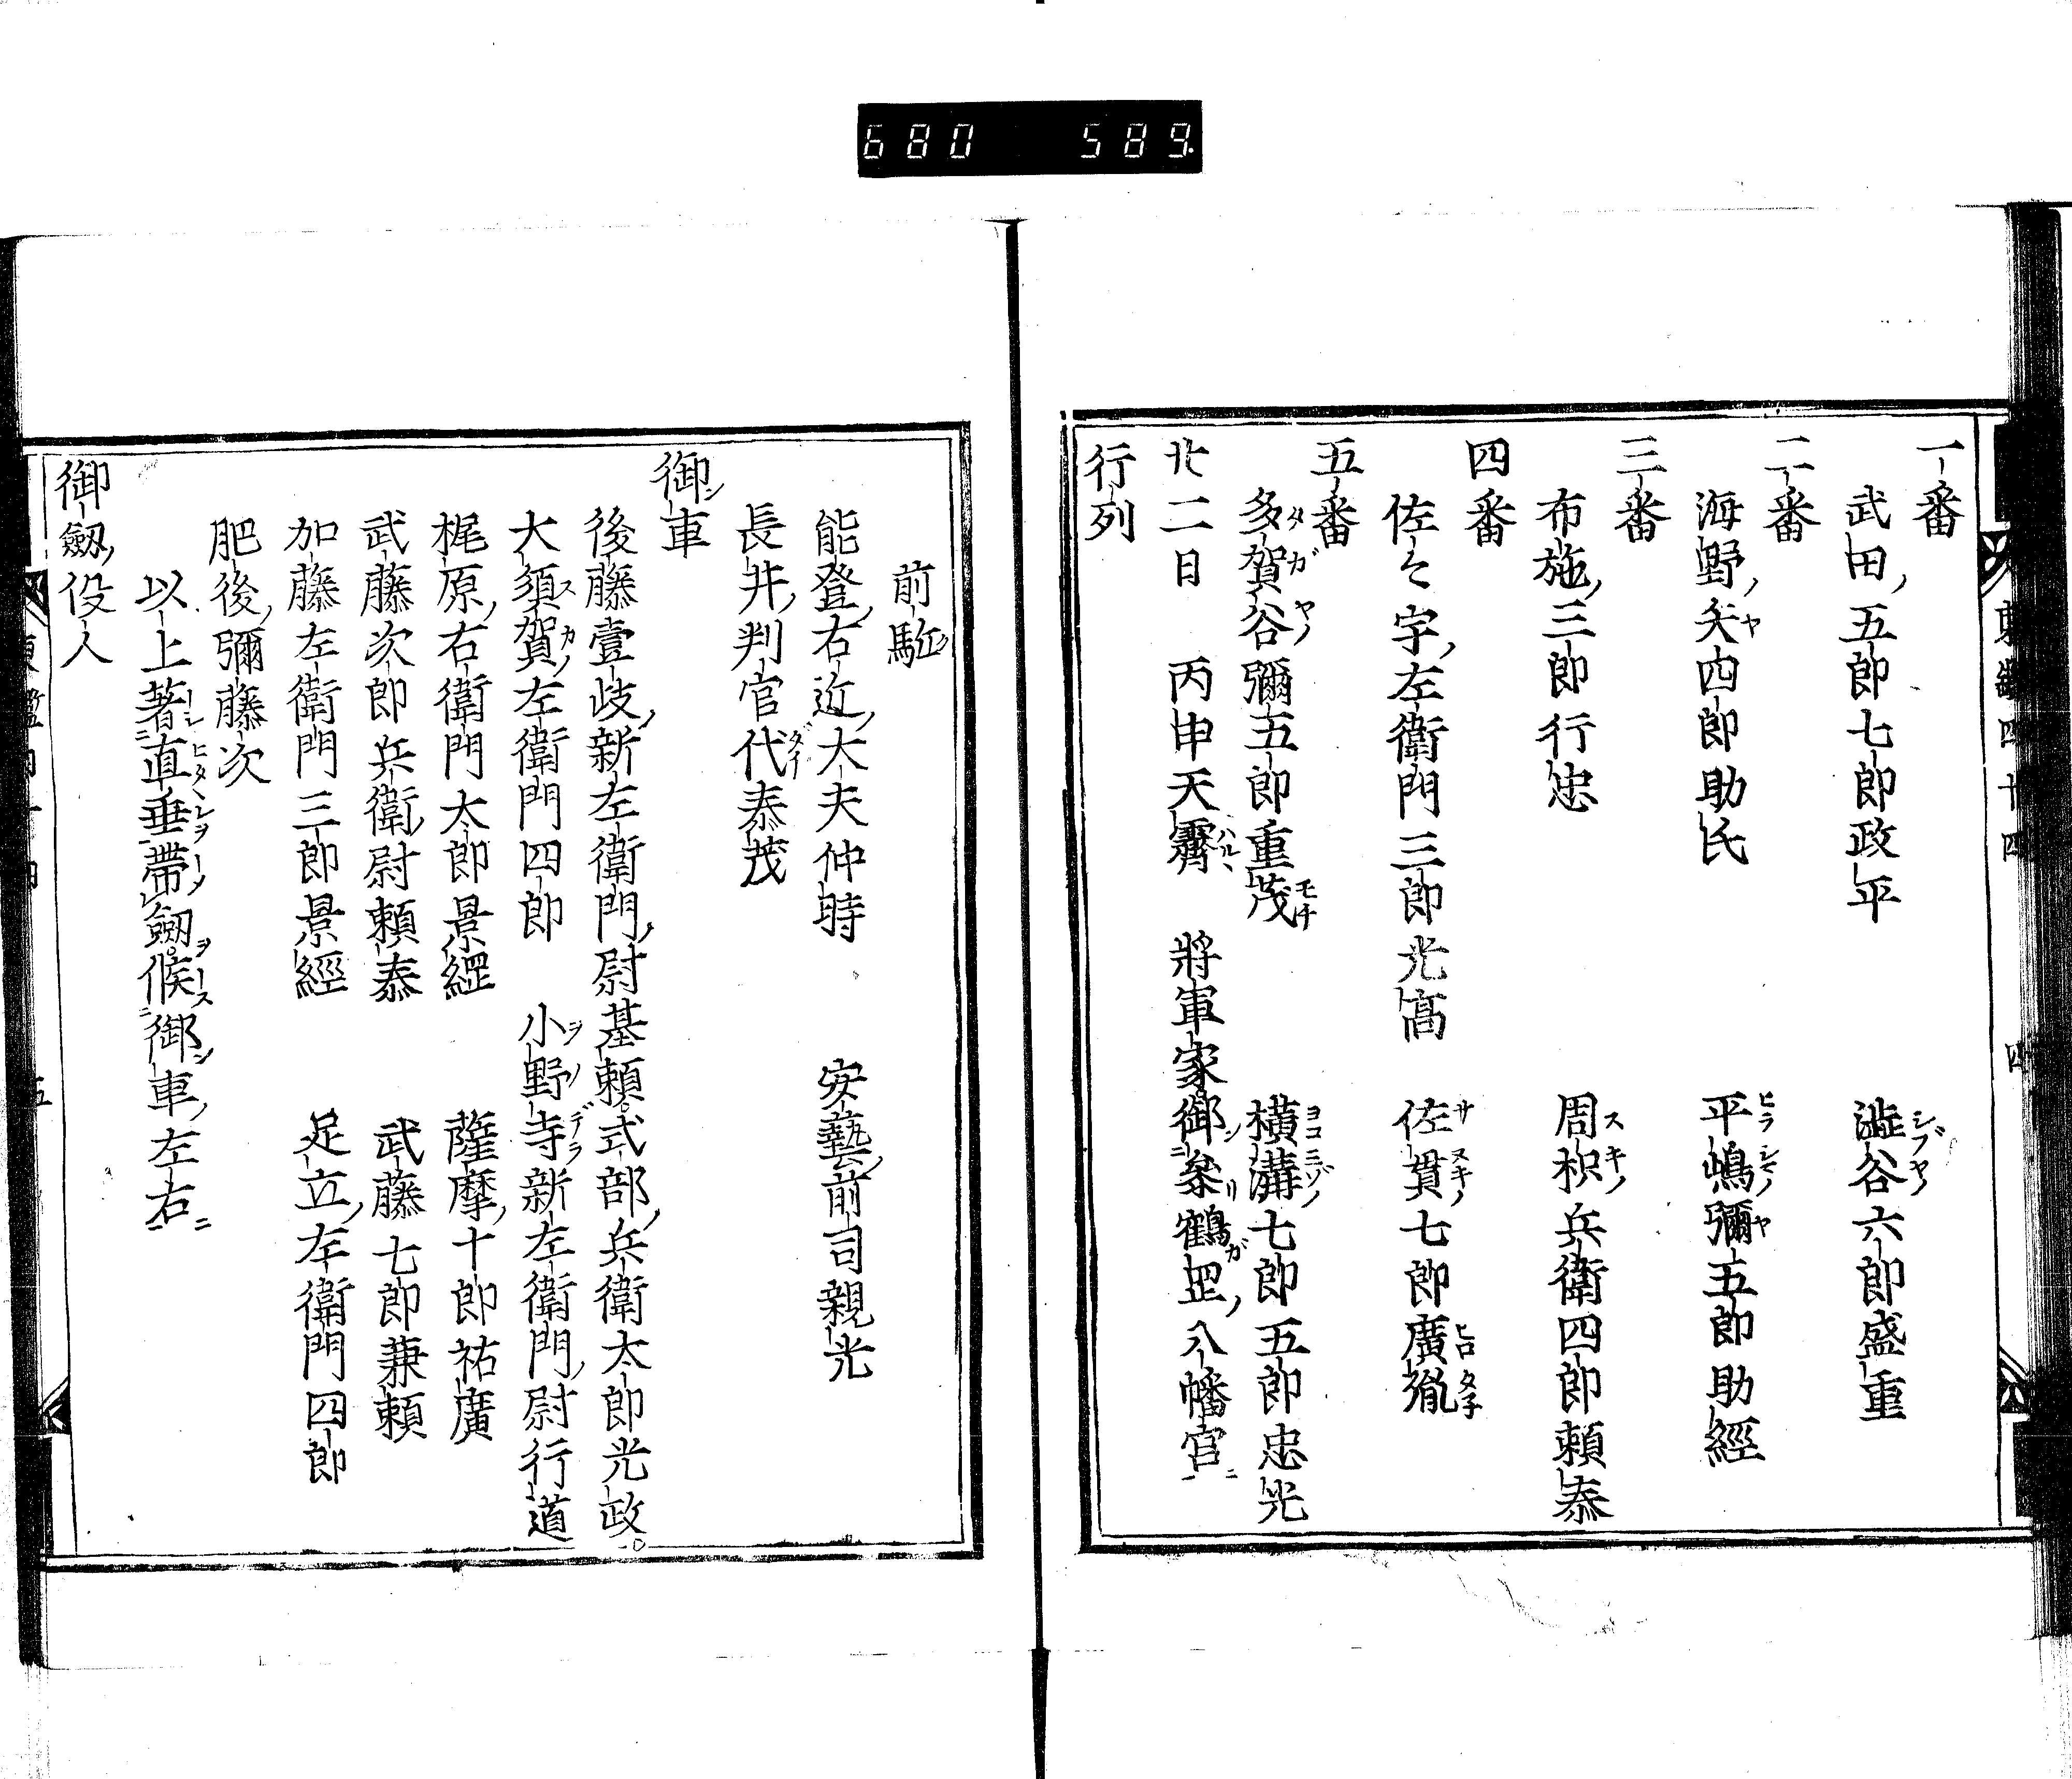 680 589
一番
武田五郎七郎政平 澁谷六郎盛重
二番
海野矢四郎助氏 平嶋彌五郎助經
三番
布施三郎行忠 周枳兵衛四郎頼泰
四番
佐々宇左衛門三郎光髙 佐貫七郎廣胤
五番
多賀谷彌五郎重茂 横溝七郎五郎忠光
廿二日 丙申天霽 將軍家御參鶴岡八幡宮
行列
前駈
能登右近大夫仲時 安藝前司親光
長井判官代泰茂
御車
後藤壹岐新左衛門尉基頼 式部兵衛太郎光政
大須賀左衛門四郎 小野寺新左衛門尉行道
梶原右衛門太郎景綱 薩摩十郎祐廣
武藤次郎兵衛尉頼泰 武藤七郎兼頼
加藤左衛門三郎景經 足立左衛門四郎
肥後彌藤次
以上著直垂帶劔候御車左右
御劔役人